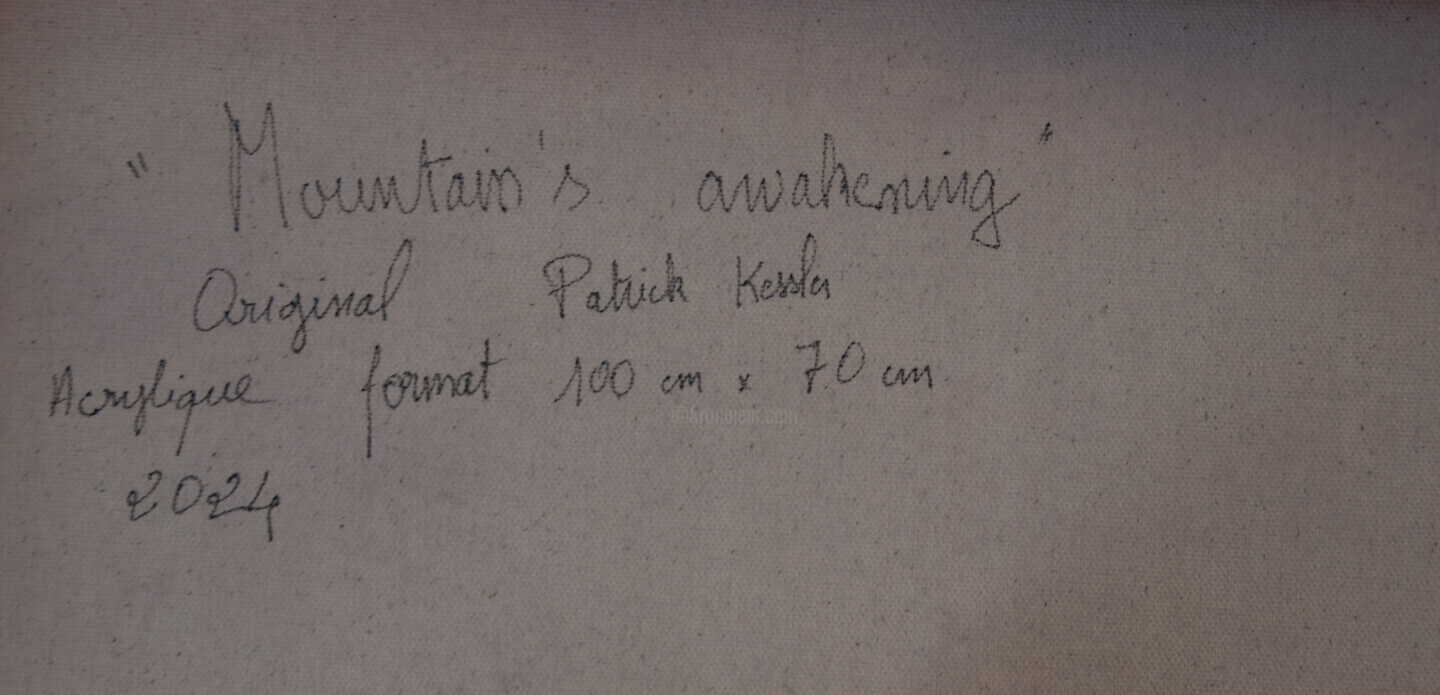 " Mountain's awakening "
Original Patrick Kessler
Acrylique format 100 cm x 70 cm
2024